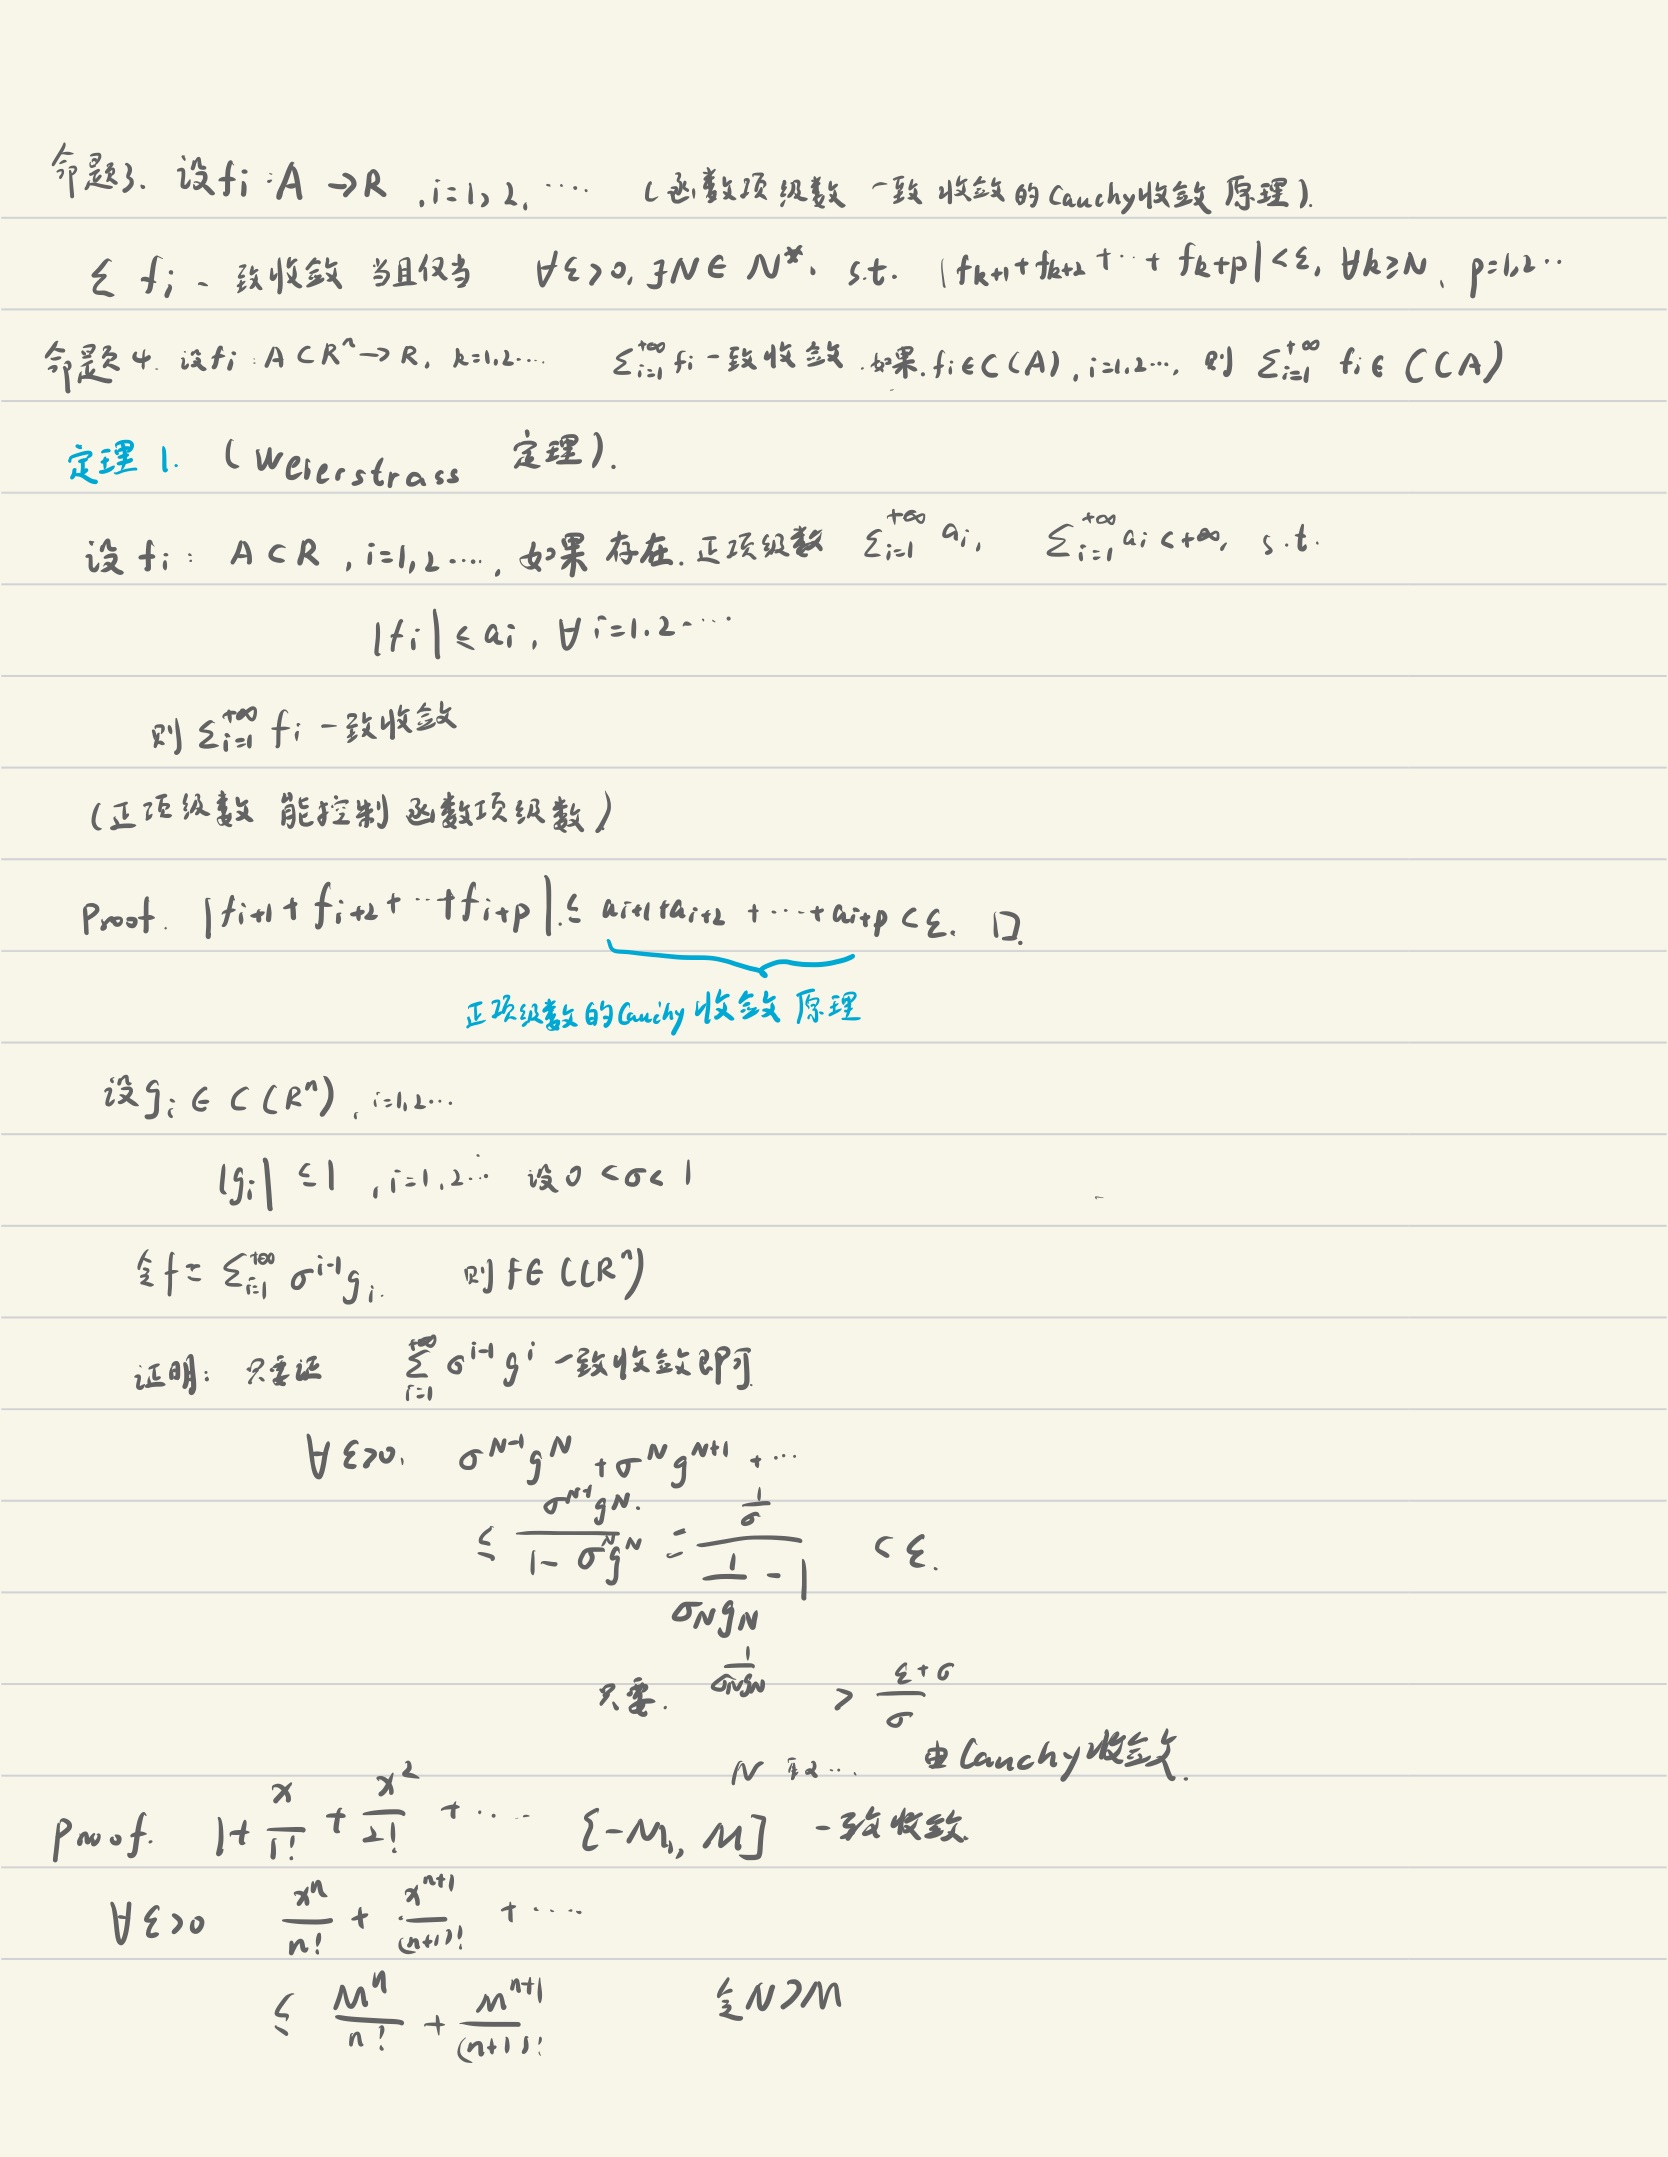 命题3. 设fi:A→R ,i=1,2,…. (函数项级数一致收敛的Cauchy收敛原理).
Σ fi 一致收敛 当且仅当 ∀ε>0,∃N∈N*, s.t. |fk+1+fk+2+…+fk+p|<ε, ∀k≥N, p=1,2…
命题4. 设fi:A⊂Rⁿ→R, k=1,2…. Σ_{i=1}^{+∞} fi 一致收敛.如果.fi∈C(A),i=1,2…, 则 Σ_{i=1}^{+∞} fi∈C(A)
定理1. (Weierstrass 定理).
设fi: A⊂R ,i=1,2…., 如果存在.正项级数 Σ_{i=1}^{+∞} ai, Σ_{i=1}^{+∞} ai<+∞, s.t.
|fi|≤ai, ∀i=1,2….
则 Σ_{i=1}^{+∞} fi 一致收敛
(正项级数 能控制 函数项级数)
Proof. |fi+1+fi+2+…+fi+p|≤ai+1+ai+2+…+ai+p<ε. □.
正项级数的Cauchy收敛原理
设gi∈C(Rⁿ),i=1,2…
|gi|≤1 ,i=1,2… 设0<σ<1
令f=Σ_{i=1}^{+∞} σ^{i-1}gi. 则f∈C(Rⁿ)
证明: 只要证 Σ_{i=1}^{+∞} σ^{i-1}g^i 一致收敛即可
∀ε>0, σ^{N-1}g^N+σ^N g^{N+1}+…
≤ \frac{σ^{N-1}g^N.}{1-σ^N g^N} = \frac{\frac{1}{σ}}{\frac{1}{σ_N g_N}-1} <ε.
只要. \frac{1}{σ_N g_N} > \frac{ε+σ}{σ}
N 取… 由Cauchy收敛.
Proof. 1+\frac{x}{1!}+\frac{x^2}{2!}+…. [-M, M] 一致收敛
∀ε>0 \frac{x^n}{n!}+\frac{x^{n+1}}{(n+1)!}+….
≤ \frac{M^n}{n!}+\frac{M^{n+1}}{(n+1)!} 令N>M